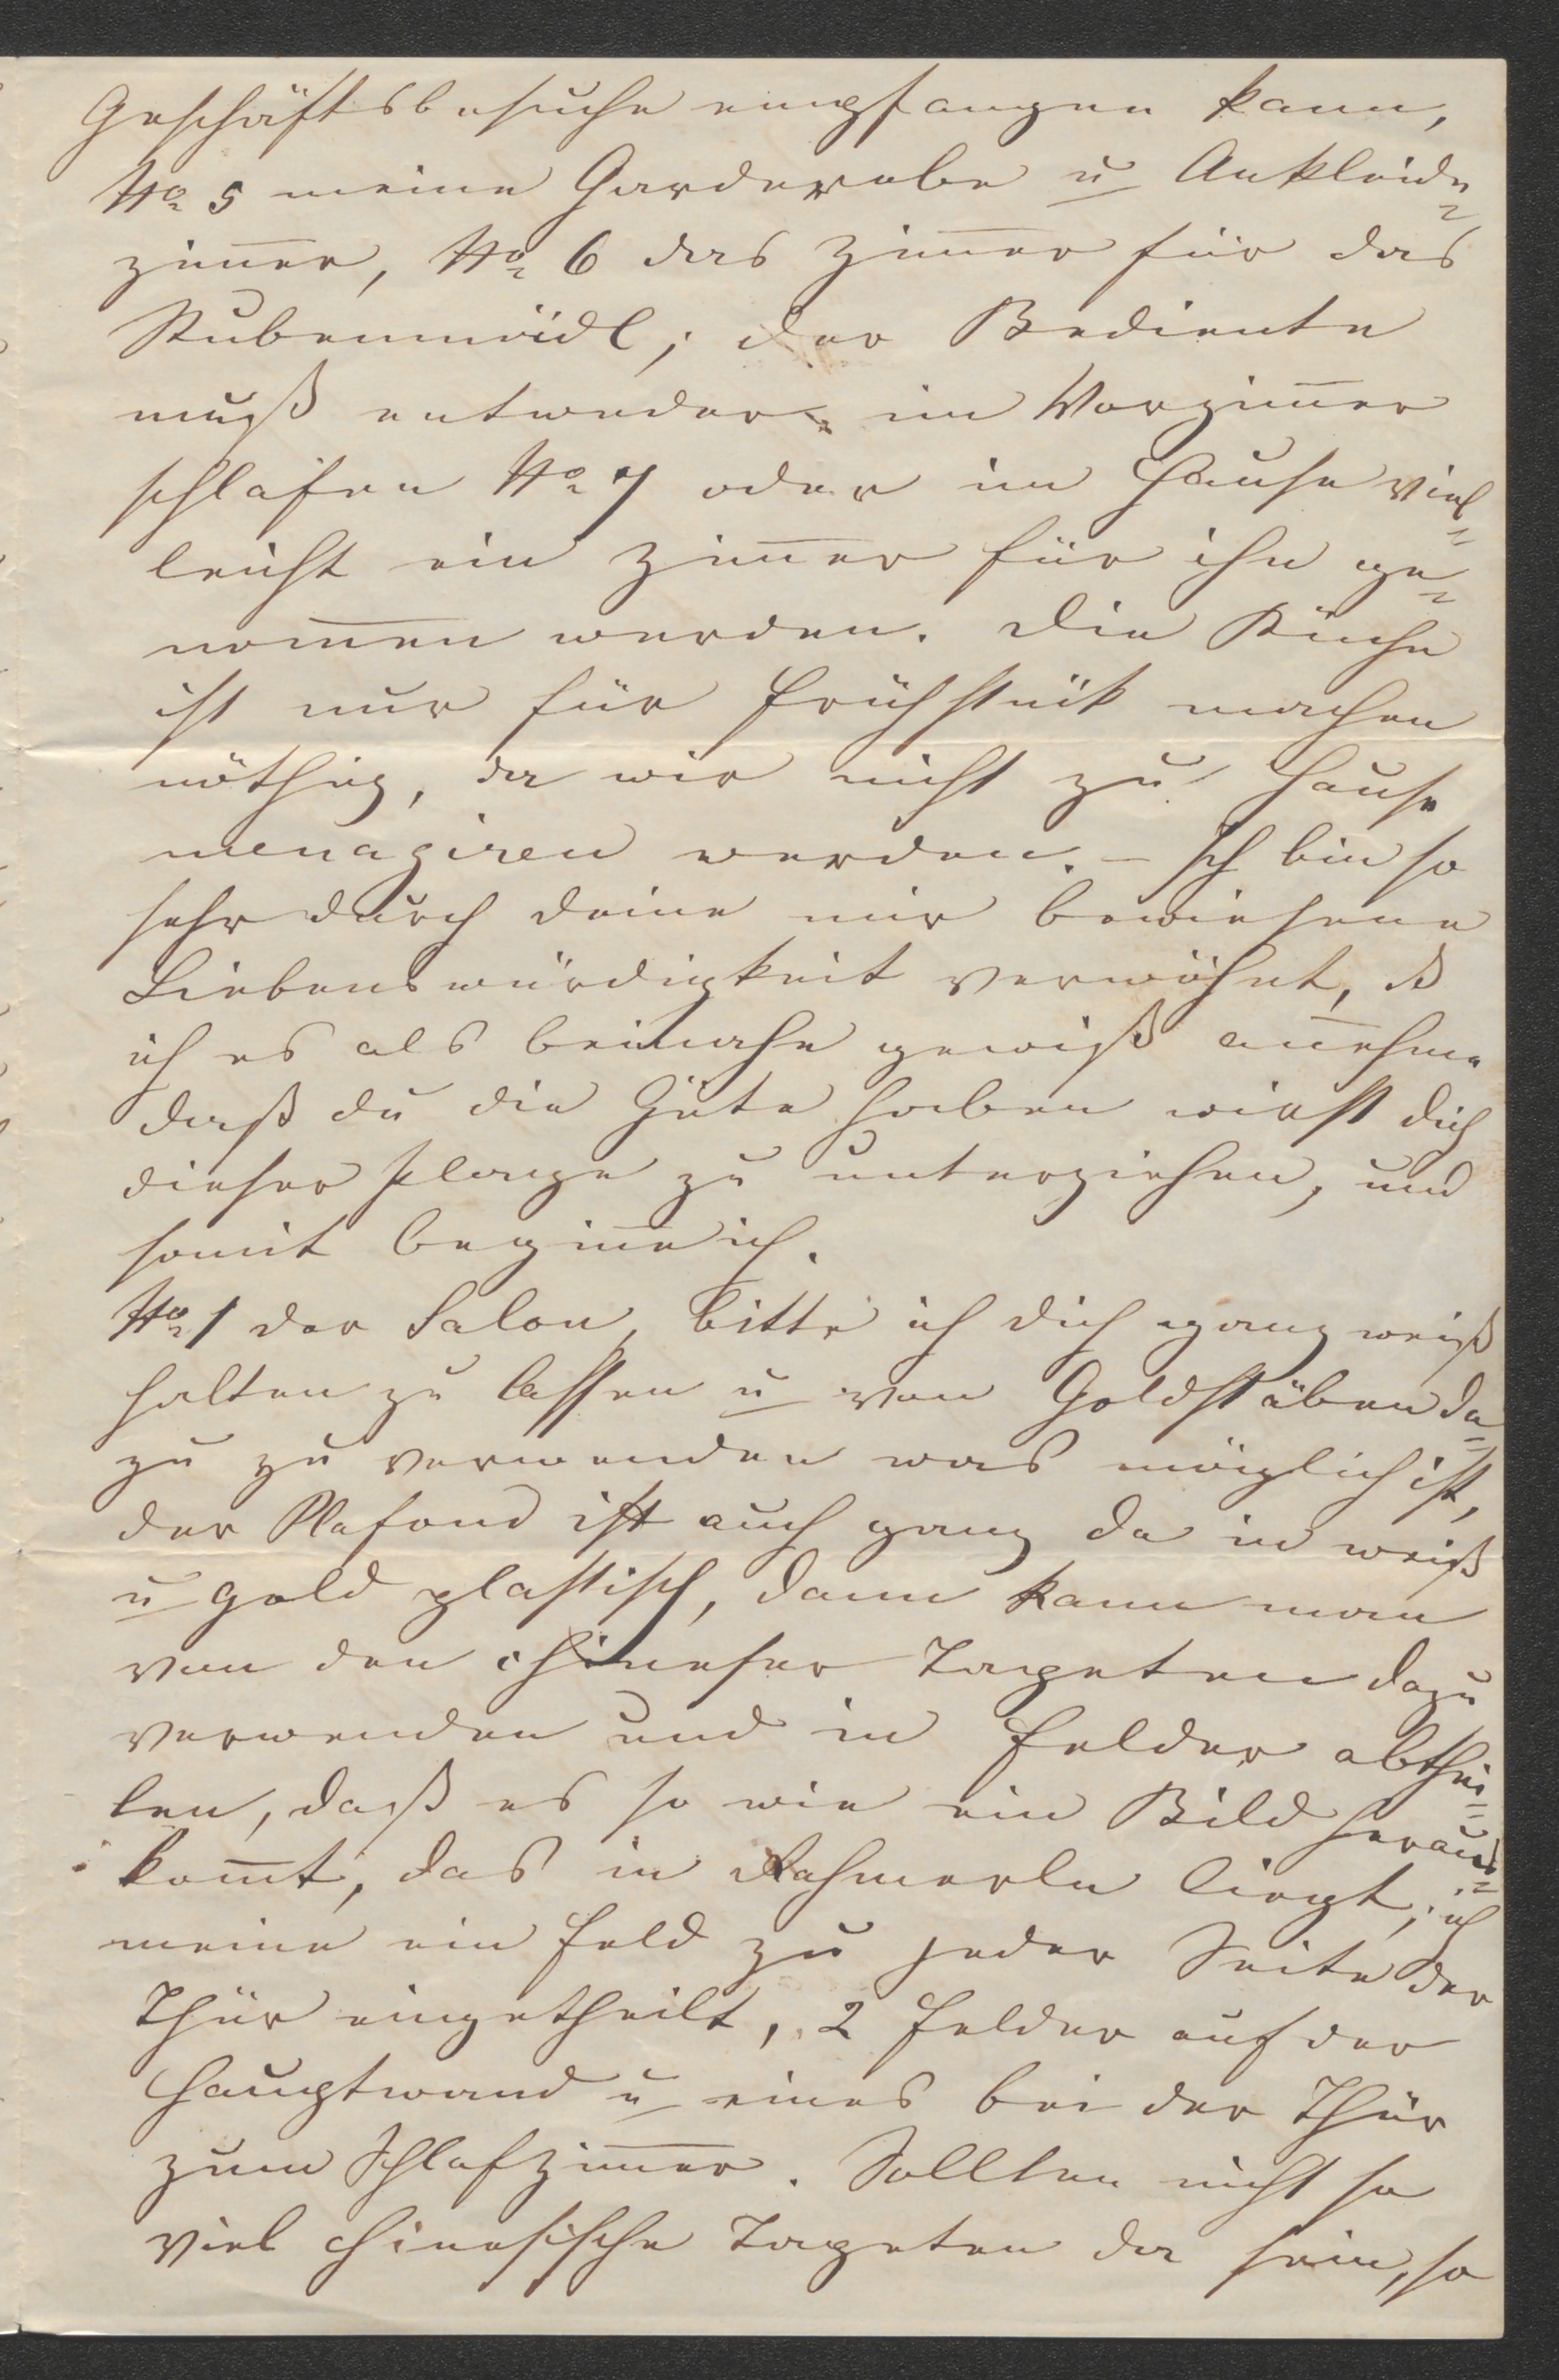 Geschäftsbesuche empfangen kann,
No 5 meine Garderobe u Ankleide=
zim̅er, No 6 das Zim̅er für das
Stubenmädl; der Bediente
muß entweder im Vorzim̅er
schlafen No 7 oder im Hause viel=
leicht ein Zim̅er für ihn ge=
nom̅en werden. Die Küche
ist nur für Frühstük machen
nöthig, da wir nicht zu Hause
menagiren werden. – Ich bin so
sehr durch deine mir bewiesene
Liebenswürdigkeit verwöhnt, ß
ich es als beinahe gewiß an̅ehme
daß du die Güte haben wirst dich
dieser Plage zu unterziehen, und
somit begin̅e ich.
No 1 der Salon, bitte ich dich ganz weiß
halten zu lassen u von Goldstäben da=
zu zu verwenden was möglich ist,
der Plafond ist auch ganz da in weiß
u gold plastisch, dann kann man
von den chineser Tapeten dazu
verwenden und in Felder abthei=
len, daß es so wie ein Bild heraus=
kom̅t, das in Rahmerln liegt; ich
meine ein Feld zu jeder Seite der
Thür eingetheilt, 2 Felder auf der
Hauptwand u eines bei der Thür
zum Schlafzim̅er. Sollten nicht so
viel chinesische Tapeten da sein, so